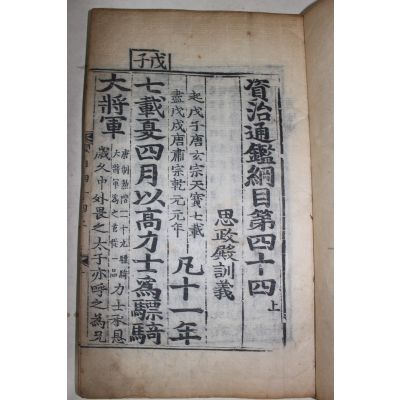 資治通鑑綱目第四十四上
思政殿訓義
起戊子唐玄宗天寶七載
盡戊戌唐肅宗乾元元年 凡十一年
戊子
七載夏四月以高力士為驃騎
大將軍
力士承恩
歲久中外畏之太子亦呼之為兄